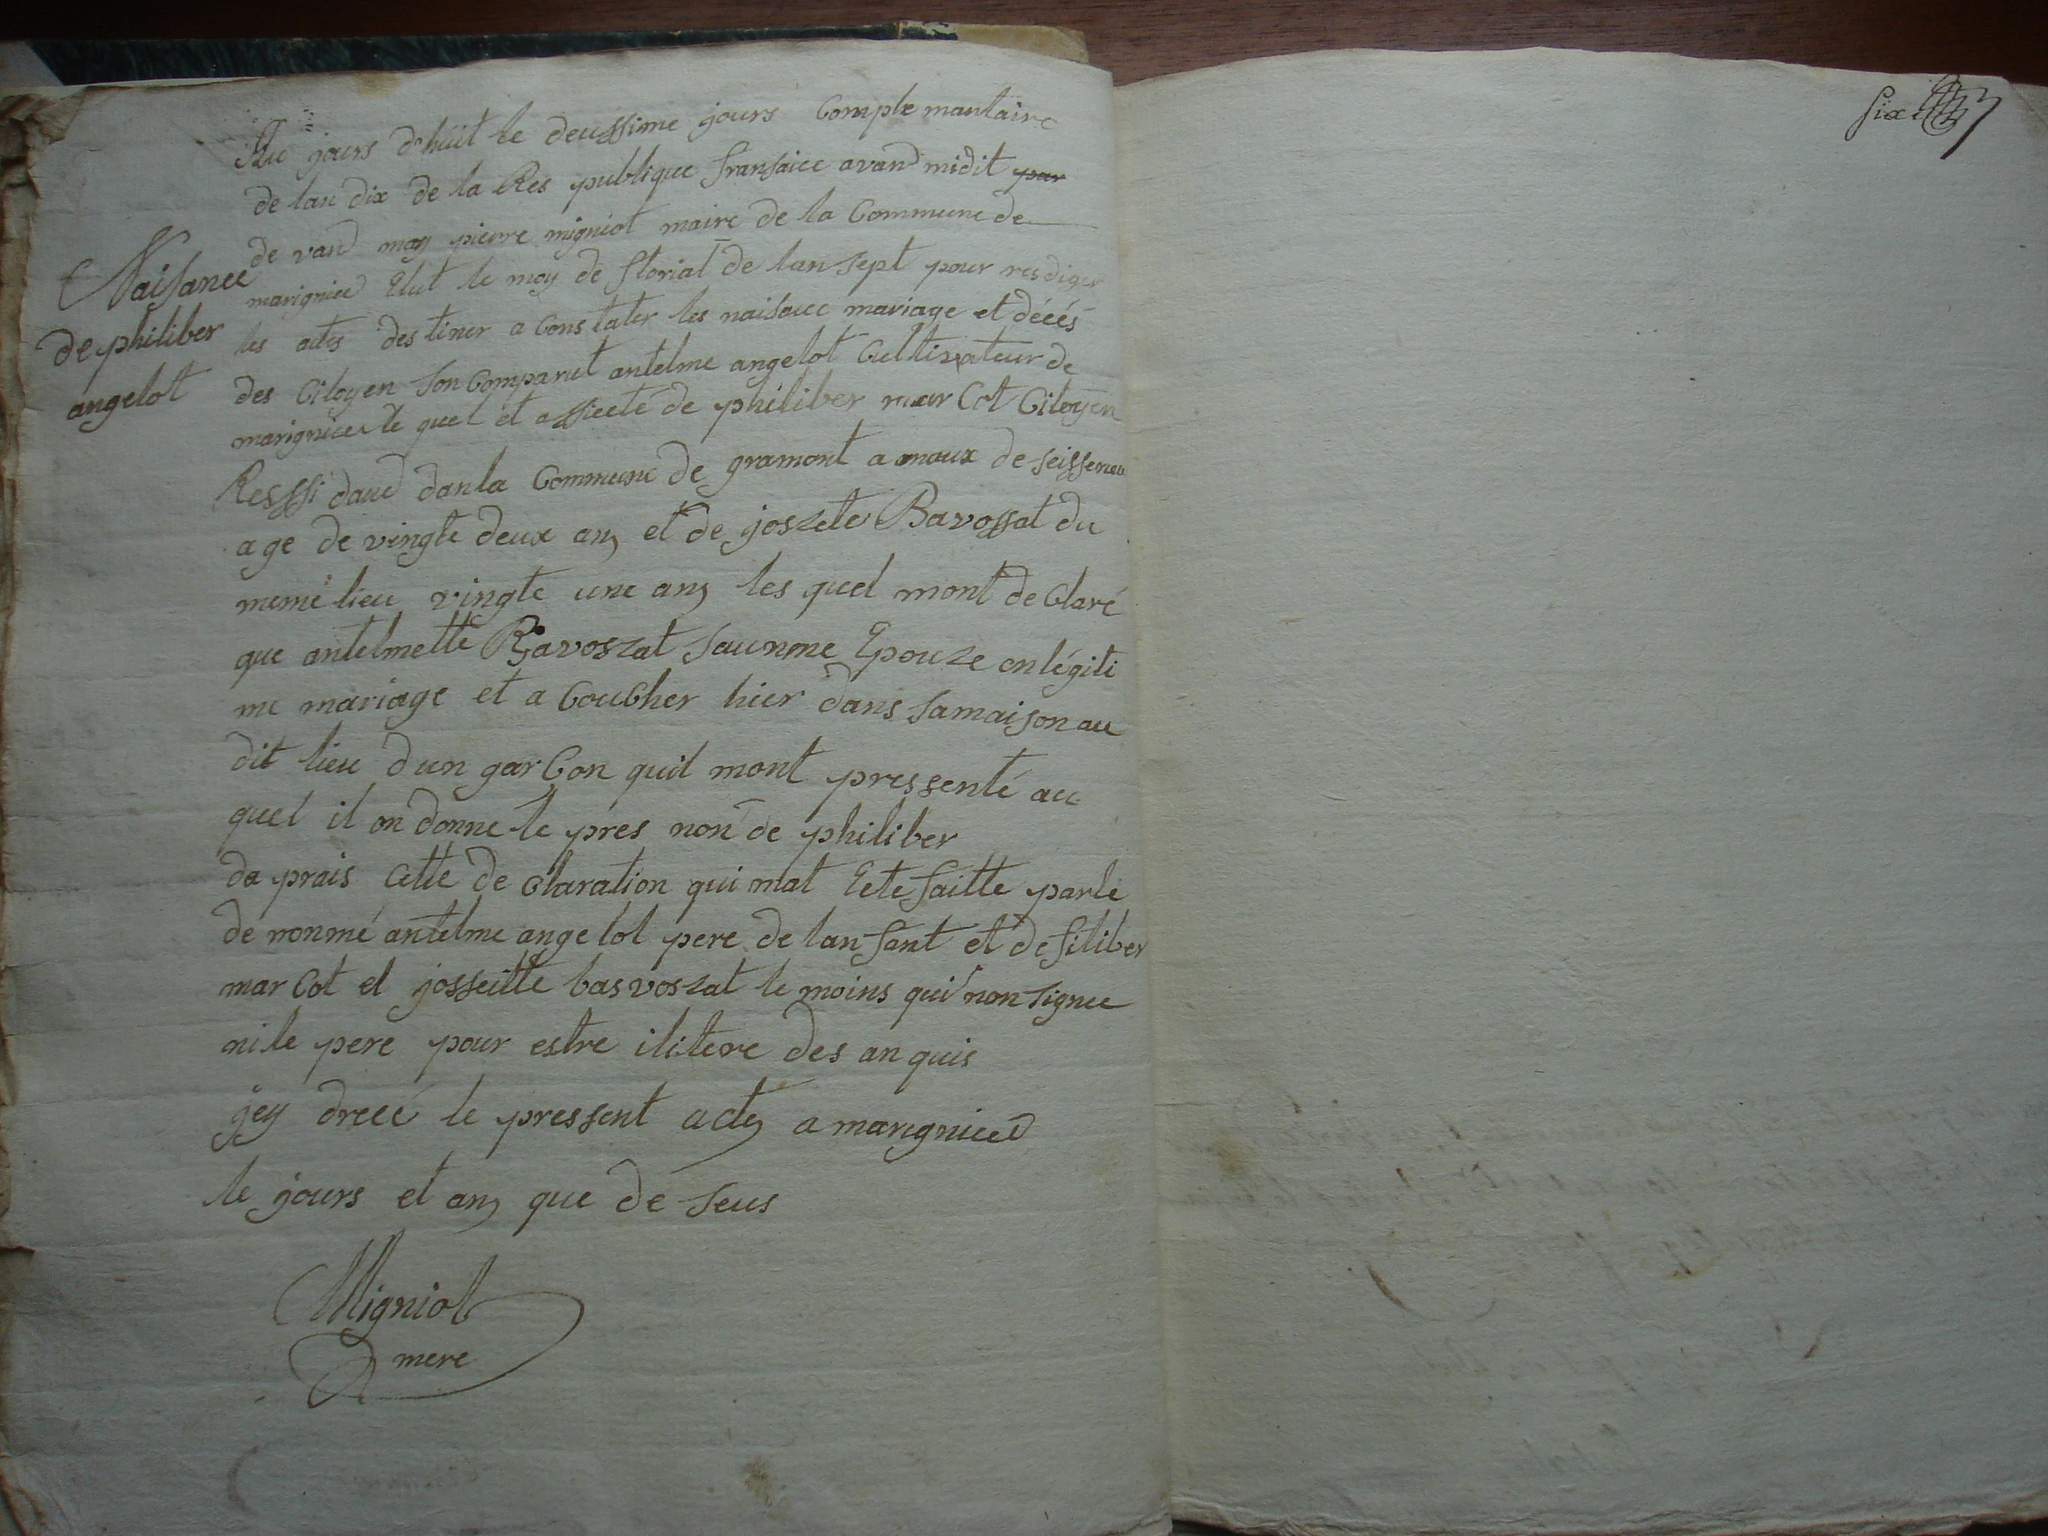 Au jours dhuit le deussime jours Complemantaire
de lan dix de la Res publique fransaice avand midit par
de vand moy pierre migniot maire de la Commune de
marignieu Elut le moy de florial de lan sept pour resdiger
les actes destiner a Constater les naisance mariage et décés
des Citoyen Son Comparut antelme angelot Cultivateur de
marignieu le quel et assiecte de philiber marCot Citoyen
Resssidand danla Commune de gramont a maux de seissenau
age de vingte deux an et de joszete Bavossat du
meme lieu vingte une an les quel mont de Claré
que antelmette Bavoszat saunme Epouze on légiti
me mariage et a CouCher hier dans samaison au
dit lieu dun garCon quil mont pressenté au
quel il on donne le pres non de philiber
da prais Cette de Claration qui mat Eete faitte parle
de nonmé antelme angelot pere de lanfant et de filiber
marCot et josseitte basvoszat le moins qui non signee
ni le pere pour estre ilitere des an quis
jey dreeé le pressent acte a marignieud
le jours et an que de seus
Migniot
mere
Naisance
de philiber
angelot
six